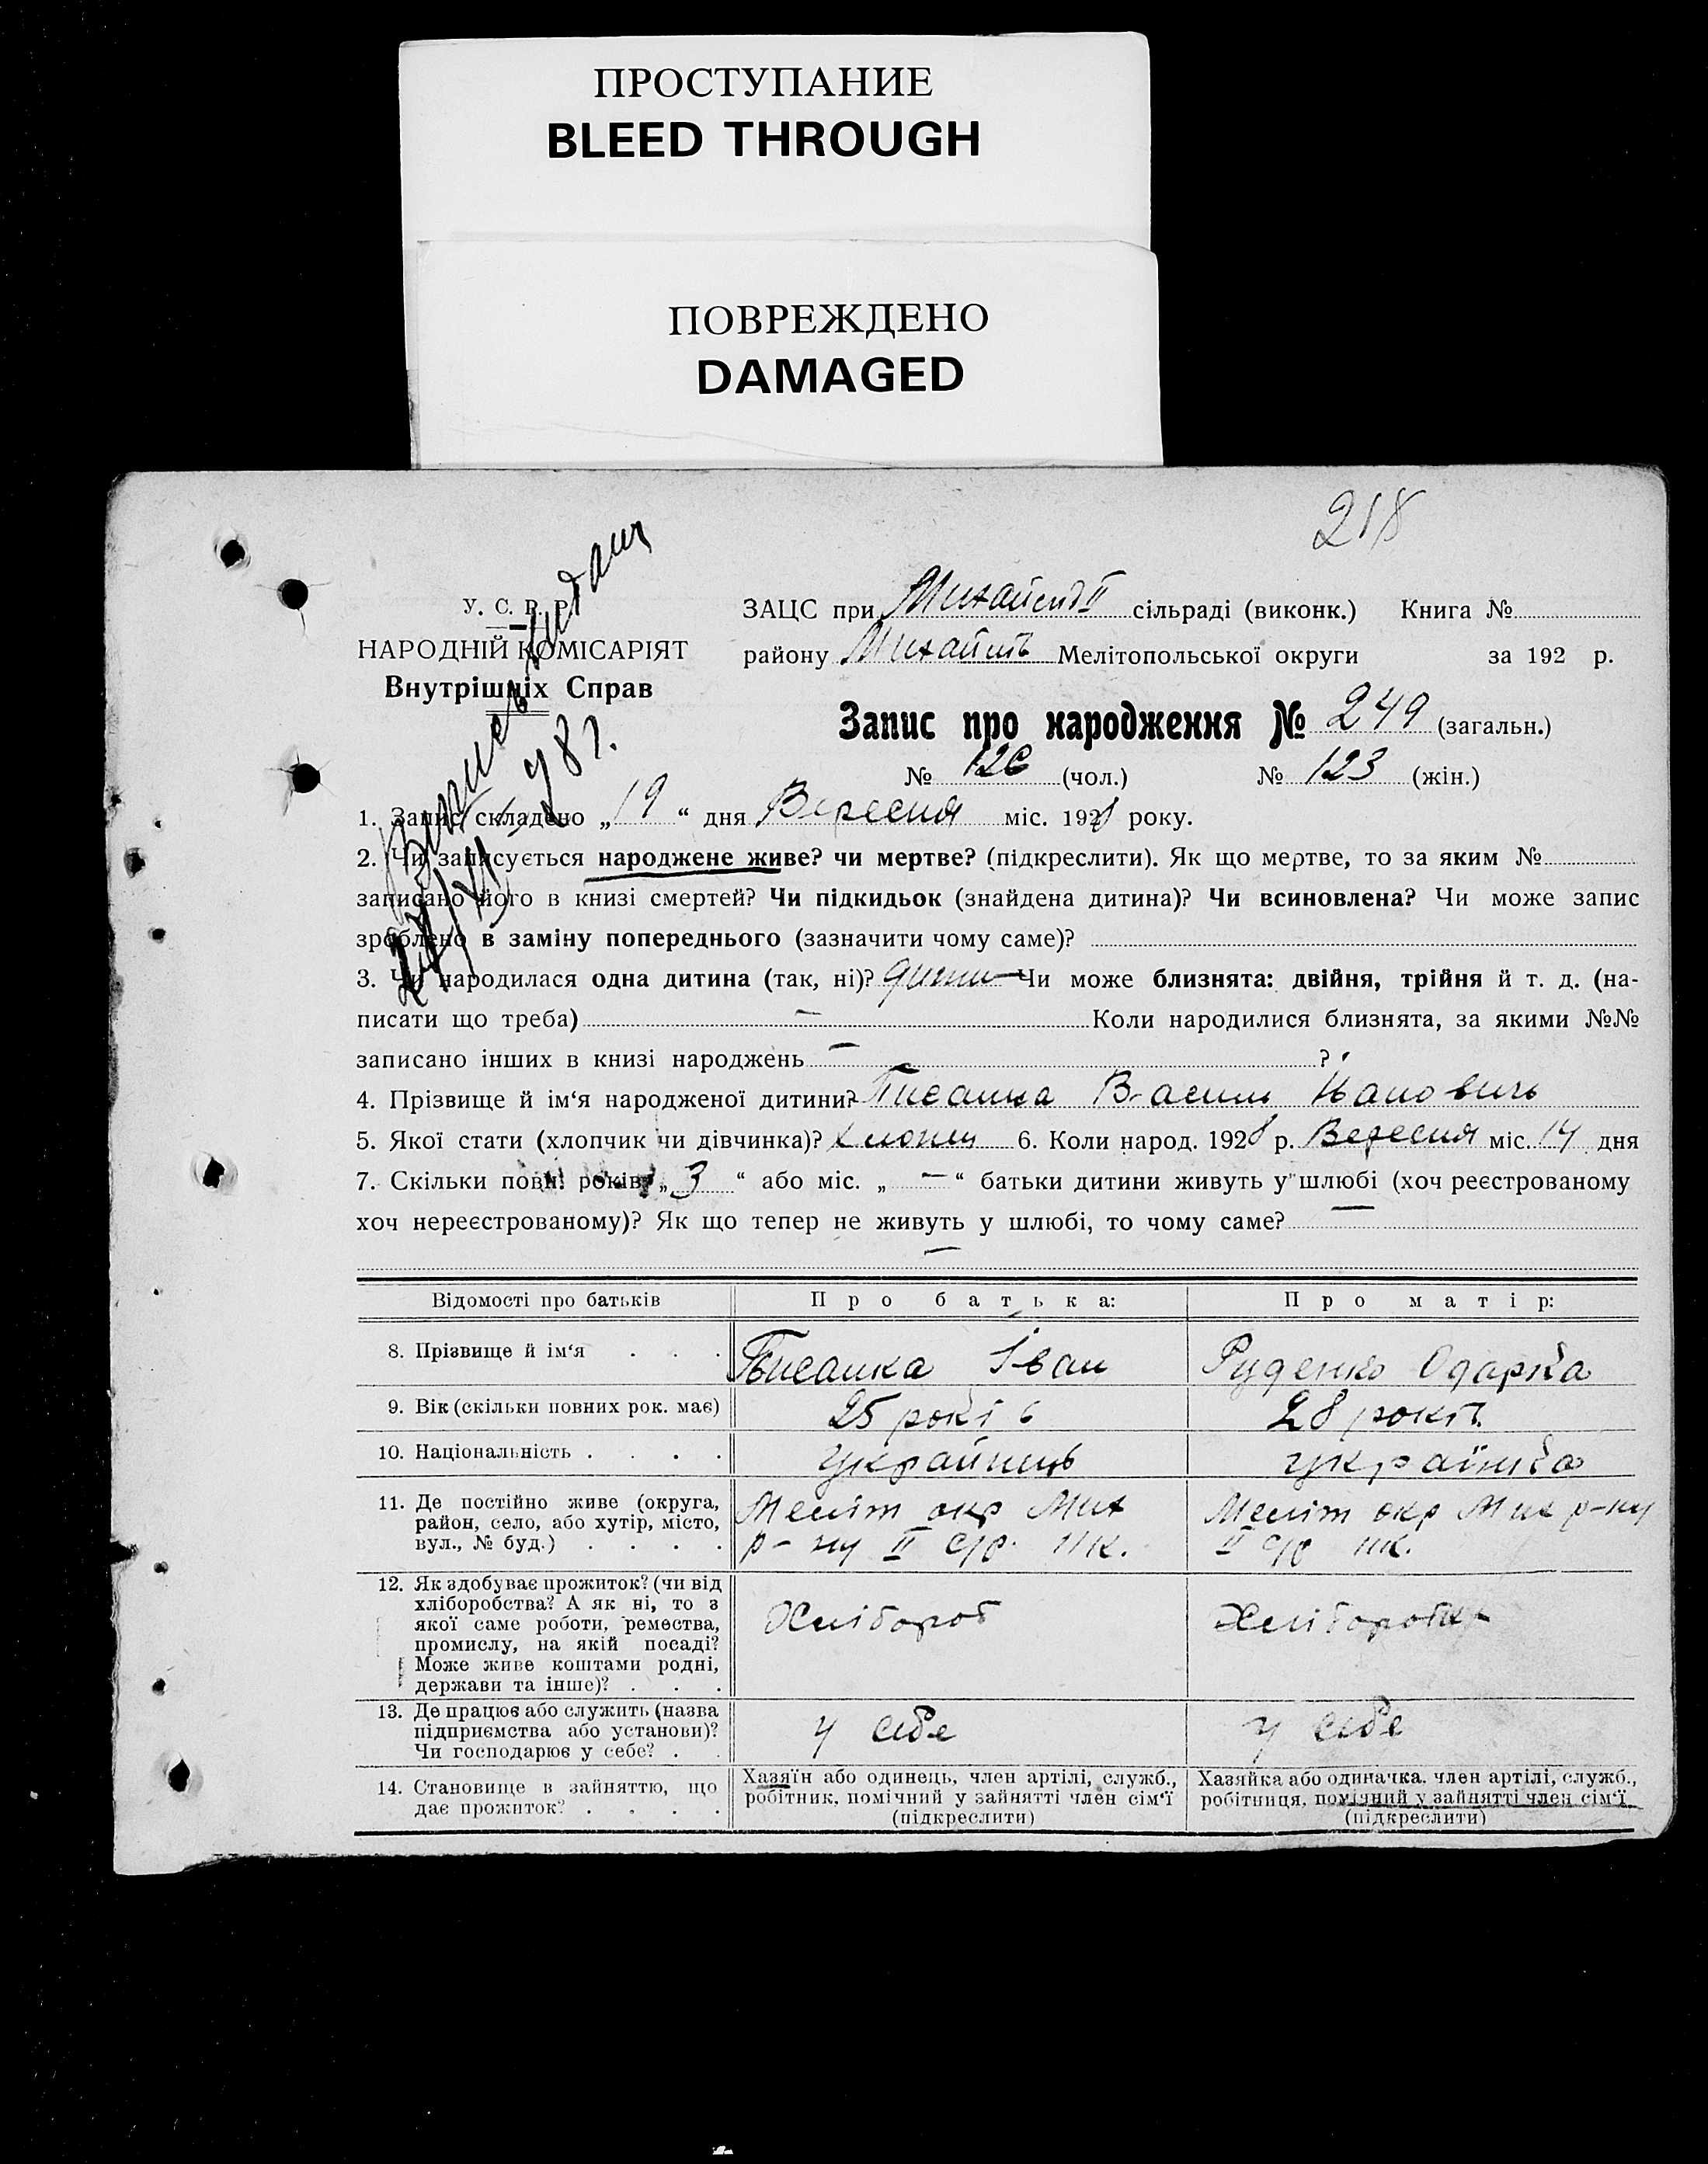 ПРОСТУПАНИЕ
BLEED THROUGH
ПОВРЕЖДЕНО
DAMAGED
218
У. С. Р. Р.
НАРОДНІЙ КОМІСАРІЯТ
Внутрішніх Справ
ЗАЦС при II сільраді (виконк.) Книга №
району Мелітопольської округи за 192 р.
Запис про народження № 249 (загальн.)
№ 126 (чол.) № 123 (жін.)
1. Запис складено „19“ дня Вересня міс. 1928 року.
2. Чи записується народжене живе? чи мертве? (підкреслити). Як що мертве, то за яким №
записано його в книзі смертей? Чи підкидьок (знайдена дитина)? Чи всиновлена? Чи може запис
зроблено в заміну попереднього (зазначити чому саме)?
3. Чи народилася одна дитина (так, ні)? Чи може близнята: двійня, трійня й т. д. (на-
писати що треба) — Коли народилися близнята, за якими №№
записано інших в книзі народжень — ?
4. Прізвище й ім‘я народженої дитини? Писанка Василь Іванович
5. Якої стати (хлопчик чи дівчинка)? Хлопец 6. Коли народ. 1928 р. Вересня міс. 14 дня
7. Скільки повн. років „3“ або міс. „—“ батьки дитини живуть у шлюбі (хоч реєстрованому
хоч нереєстрованому)? Як що тепер не живуть у шлюбі, то чому саме? —
—
Відомості про батьків Про батька: Про матір:
8. Прізвище й ім‘я . . . Писанка Іван Руденко Одарка
9. Вік (скільки повних рок. має) 25 років 28 років
10. Національність . . . . українець українка
11. Де постійно живе (округа, Меліт окр Мих Меліт окр Мих р-ну
район, село, або хутір, місто, р-ну II с/р. II с/р
вул., № буд.) . . . .
12. Як здобуває прожиток? (чи від
хліборобства? А як ні, то з
якої саме роботи, ремества, Хлібороб Хліборобка
промислу, на якій посаді?
Може живе коштами родні,
держави та інше)? . . .
13. Де працює або служить (назва
підприємства або установи)? у себе у себе
Чи господарює у себе? . .
14. Становище в зайняттю, що Хазяїн або одинець, член артілі, служб., Хазяйка або одиначка, член артілі, служб.,
дає прожиток? . . . . робітник, помічний у зайнятті член сім‘ї робітниця, помічний у зайнятті член сім‘ї
(підкреслити) (підкреслити)